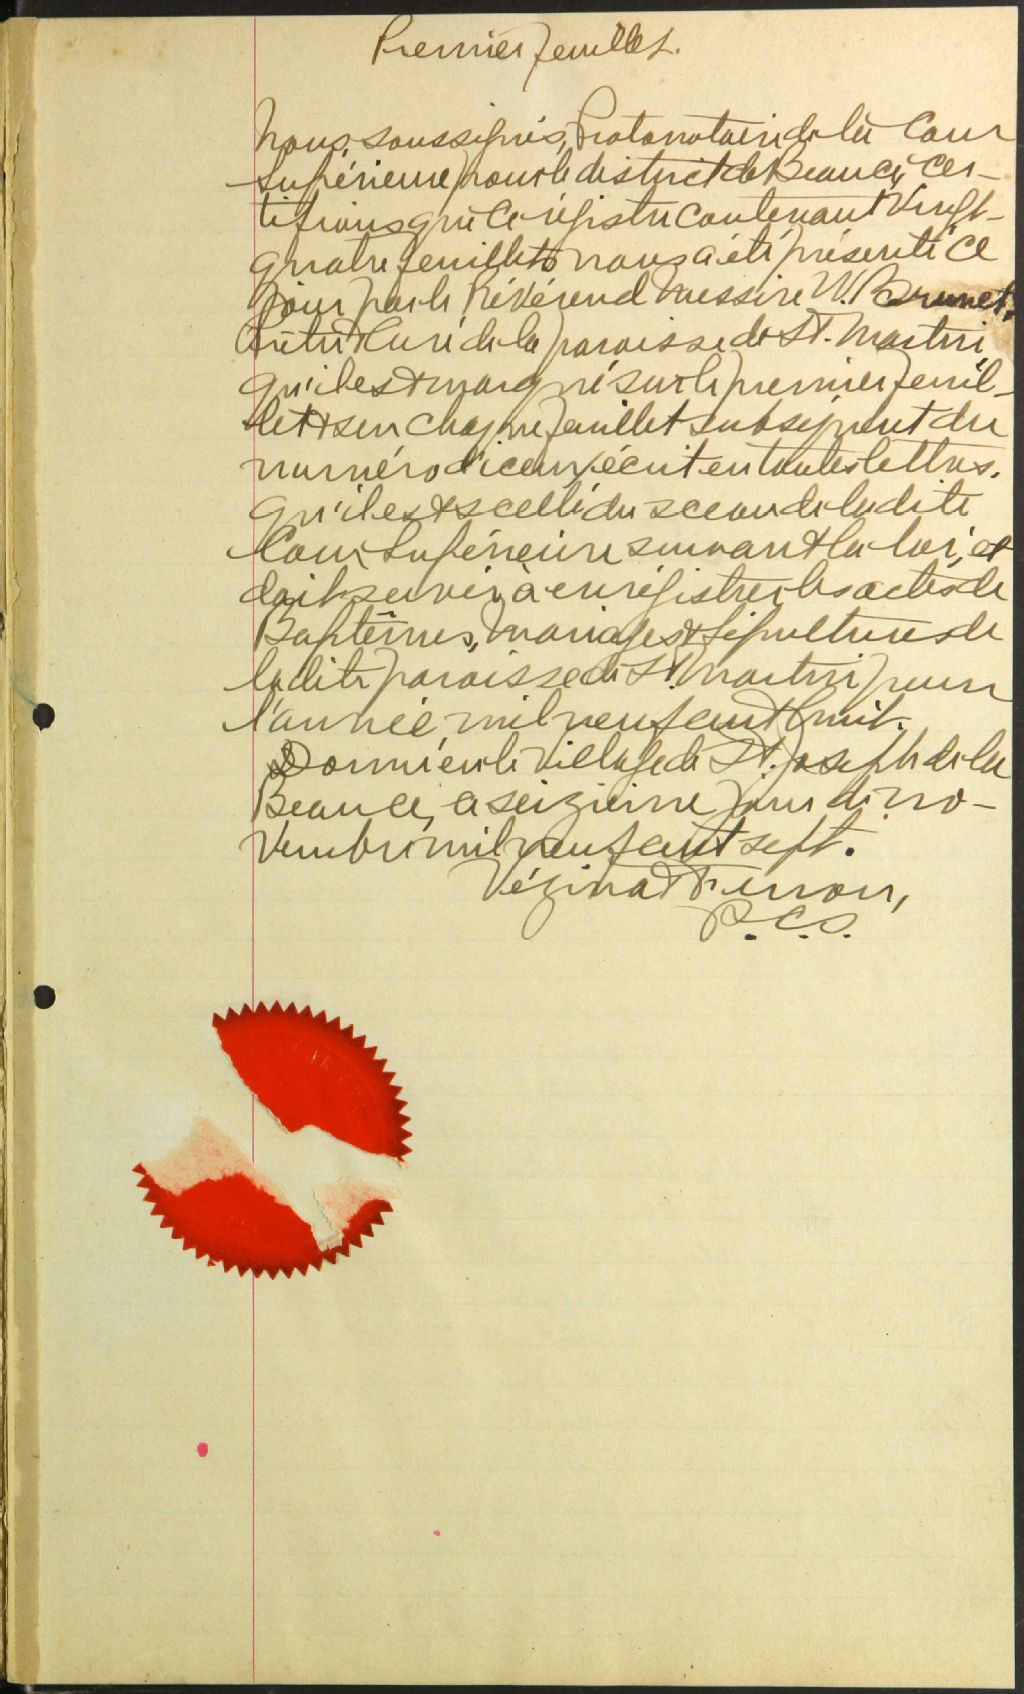 Premier feuillet.
Nous, soussignés, Protonotaire de la Cour
Supérieure pour le district de Beauce, cer-
tifions que ce régistre contenant vingt-
quatre feuillets nous a été présenté ce
jour par le Révérend Messire W. Brunet,
Prêtre & Curé de la paroisse de St. Martin,
qu'il est marqué sur le premier feuil-
let & sur chaque feuillet subséquent du
numéro d'iceux, écrit en toutes lettres.
qu'il est scellé du sceau de la dite
Cour Supérieure suivant la loi, et
doit servir à enrégistrer les actes de
Baptêmes, Mariages & Sépultures de
la dite paroisse de St. Martin pour
l'année mil neuf cent huit.
Donné en le village de St. Joseph de la
Beauce, ce seizième jour de no-
vembre mil neuf cent sept.
Vézina &
P.C.S.